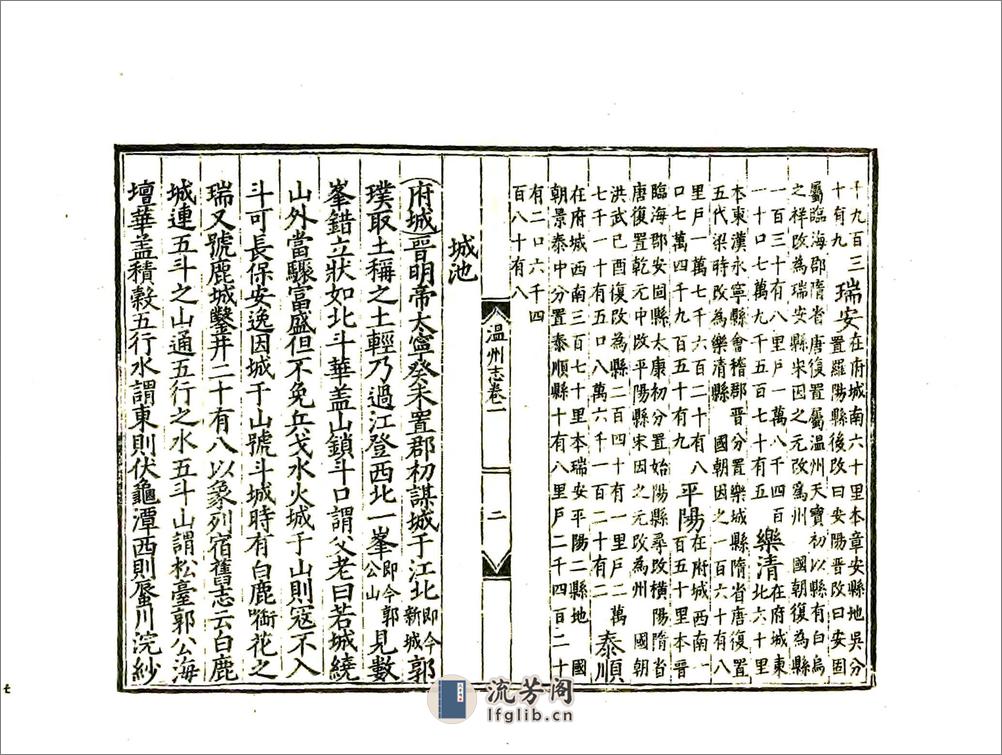 千九百三
十有九
瑞安
在府城南六十里本章安縣地吳分
置羅陽縣後改曰安陽晋改曰安固
屬臨海郡隋省唐復置屬温州天寳初以縣有白烏
之祥改為瑞安縣宋因之元改為州 國朝復為縣
一百三十有八里戶一萬八千四百
一十口七萬九千五百七十有五
樂清
在府城東
北六十里
本東漢永寧縣會稽郡晋分置樂城縣隋省唐復置
五代梁時改為樂清縣 國朝因之一百六十有八
里戶一萬七千六百二十有八
口七萬四千九百五十有九
平陽
在府城西南一
百五十里本晋
臨海郡安固縣太康初分置始陽縣尋改橫陽隋省
唐復置乾元中改平陽縣宋因之元改為州 國朝
洪武己酉復改為縣二百四十有一里戶二萬
七千一百十有五口八萬六千一百二十有二
泰順
在府城西南三百七十里本瑞安平陽二縣地 國
朝景泰中分置泰順縣十有八里戶二千四百二十
有二口六千四
百八十有八
温州志卷一
二
城池
府城晋明帝太寧癸未置郡初謀城于江北即今新城郭
璞取土稱之土輕乃過江登西北一峯即今郭公山見數
峯錯立狀如北斗華盖山鎖斗口謂父老曰若城繞
山外當驟富盛但不免兵戈水火城于山則寇不入
斗可長保安逸因城于山號斗城時有白鹿啣花之
瑞又號鹿城鑿井二十有八以象列宿舊志云白鹿
城連五斗之山通五行之水五斗山謂松臺郭公海
壇華盖積穀五行水謂東則伏龜潭西則蜃川浣紗
七
流芳阁
lfglib.cn